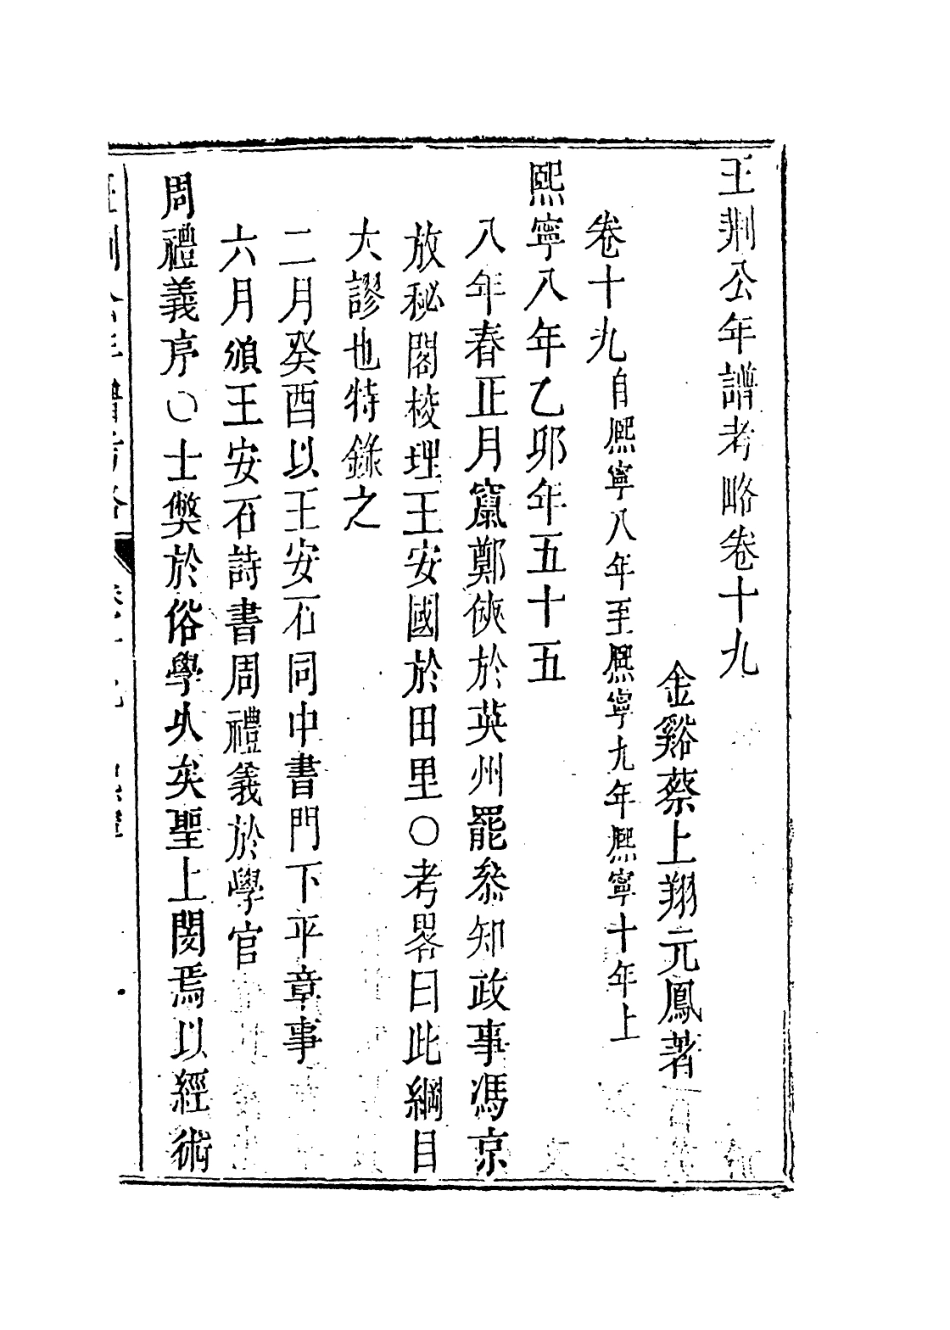 王荆公年譜考略卷十九
金谿蔡上翔元鳳著
卷十九自熙寧八年至熙寧九年熙寧十年上
熙寧八年乙卯年五十五
八年春正月竄鄭俠於英州罷叅知政事馮京
放秘閣校理王安國於田里〇考畧曰此綱目
大謬也特錄之
二月癸酉以王安石同中書門下平章事
六月頒王安石詩書周禮義於學官
周禮義序〇士獘於俗學久矣聖上閔焉以經術